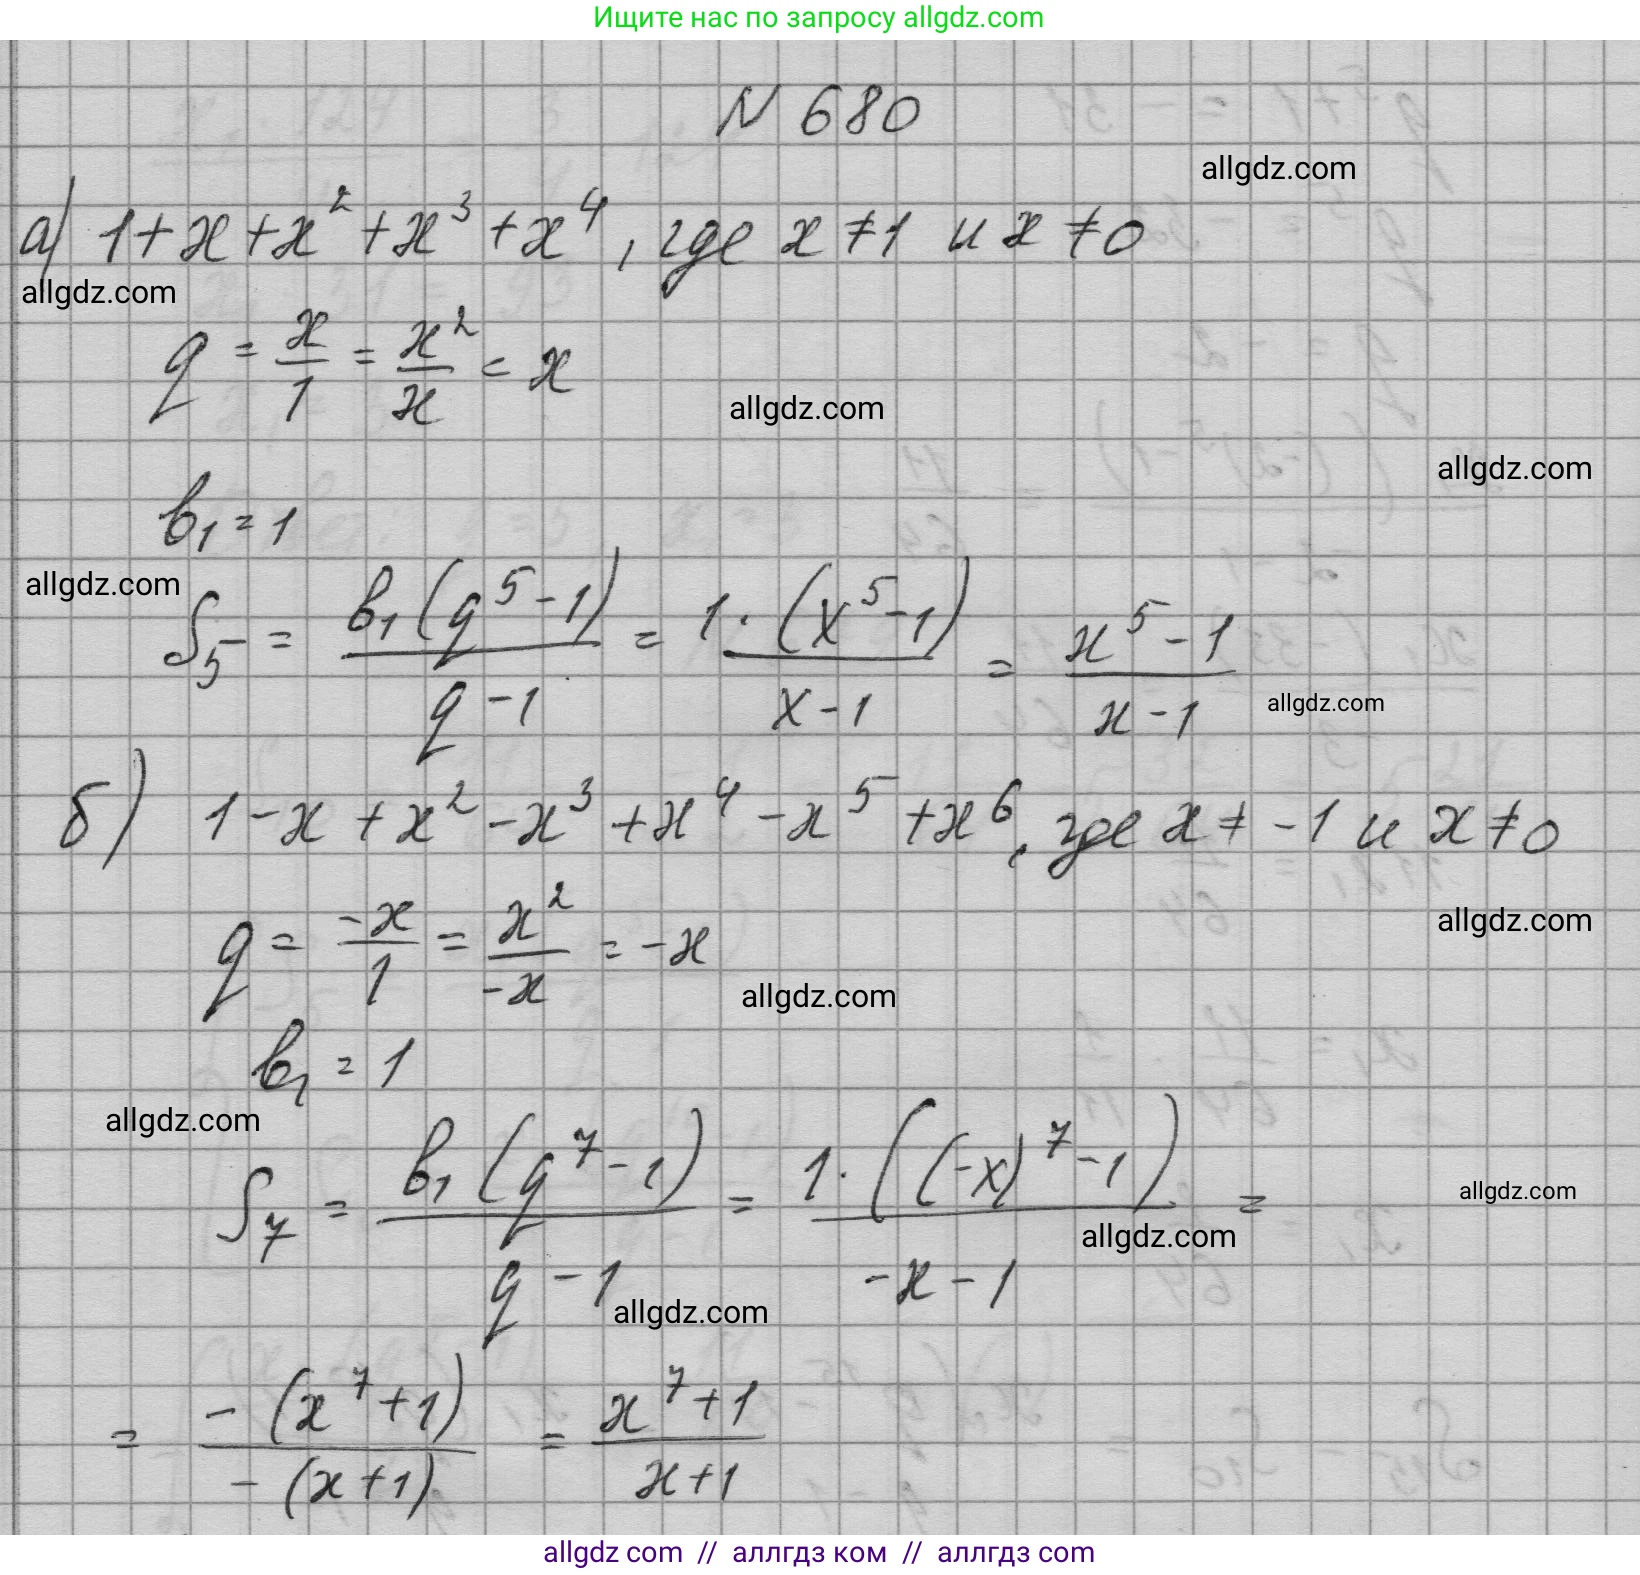 Ищите нас по запросу allgdz.com
N 680
allgdz.com
а) 1+x+x²+x³+x⁴, где x≠1 и x≠0
allgdz.com
q = x/1 = x²/x = x
allgdz.com
allgdz.com
b₁=1
allgdz.com
S₅ = b₁(q⁵-1)/(q-1) = 1·(x⁵-1)/(x-1) = (x⁵-1)/(x-1)
allgdz.com
б) 1-x+x²-x³+x⁴-x⁵+x⁶, где x≠-1 и x≠0
allgdz.com
q = -x/1 = x²/-x = -x
allgdz.com
b₁=1
allgdz.com
S₇ = b₁(q⁷-1)/(q-1) = 1·((-x)⁷-1)/(-x-1) =
allgdz.com
allgdz.com
allgdz.com
= -(x⁷+1)/-(x+1) = (x⁷+1)/(x+1)
allgdz com // аллгдз ком // аллгдз com